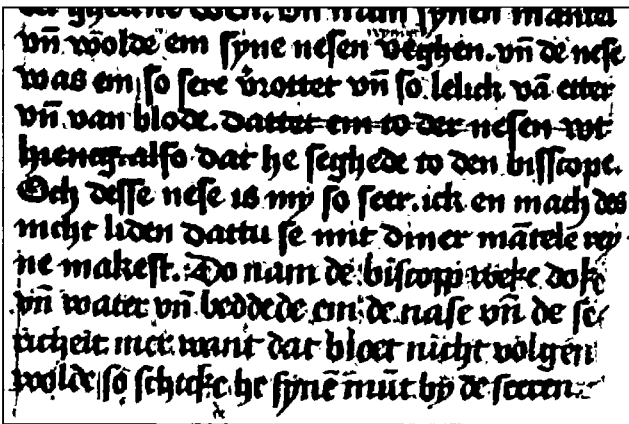 nam synen mantel
vn̄ wolde em syne nesen veghen. vn̄ de nese
was em so sere vrottet vn̄ so lelick vā etter
vn̄ van blode. dattet em to der nesen wt
hienck. also dat he seghede to den bisscope.
Och desse nese is my so seer. ick en mach des
nicht liden dattu se mit diner mātele rey
ne makest. Do nam de biscopp weke doke
vn̄ water vn̄ beddede em de nase vn̄ de se
richeit mer. want dat bloet nicht volgen
wolde so schicke he synē mūt by de seeren